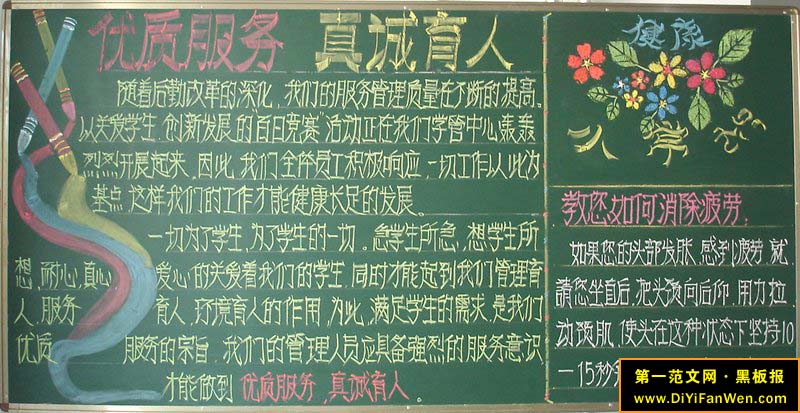 优质服务 真诚育人
随着后勤改革的深化,我们的服务管理质量在不断的提高。
以关爱学生,创新发展的“百日竞赛”活动正在我们学管中心轰轰
烈烈开展起来,因此,我们全体员工积极响应,一切工作以此为
基点,这样我们的工作才能健康长足的发展。
一切为了学生,为了学生的一切。急学生所急,想学生所
想,耐心,真心,爱心的关爱着我们的学生,同时才能起到我们管理育
人,服务育人,环境育人的作用,为此,满足学生的需求,是我们
优质服务的宗旨,我们的管理人员应具备强烈的服务意识,
才能做到 优质服务,真诚育人。
健康
教您如何消除疲劳:
如果您的头部发胀,感到疲劳,就
请您坐直后,把头颈向后仰,用力拉
动颈肌,使头在这种状态下坚持10
—15秒
第一范文网·黑板报
www.DiYiFanWen.com